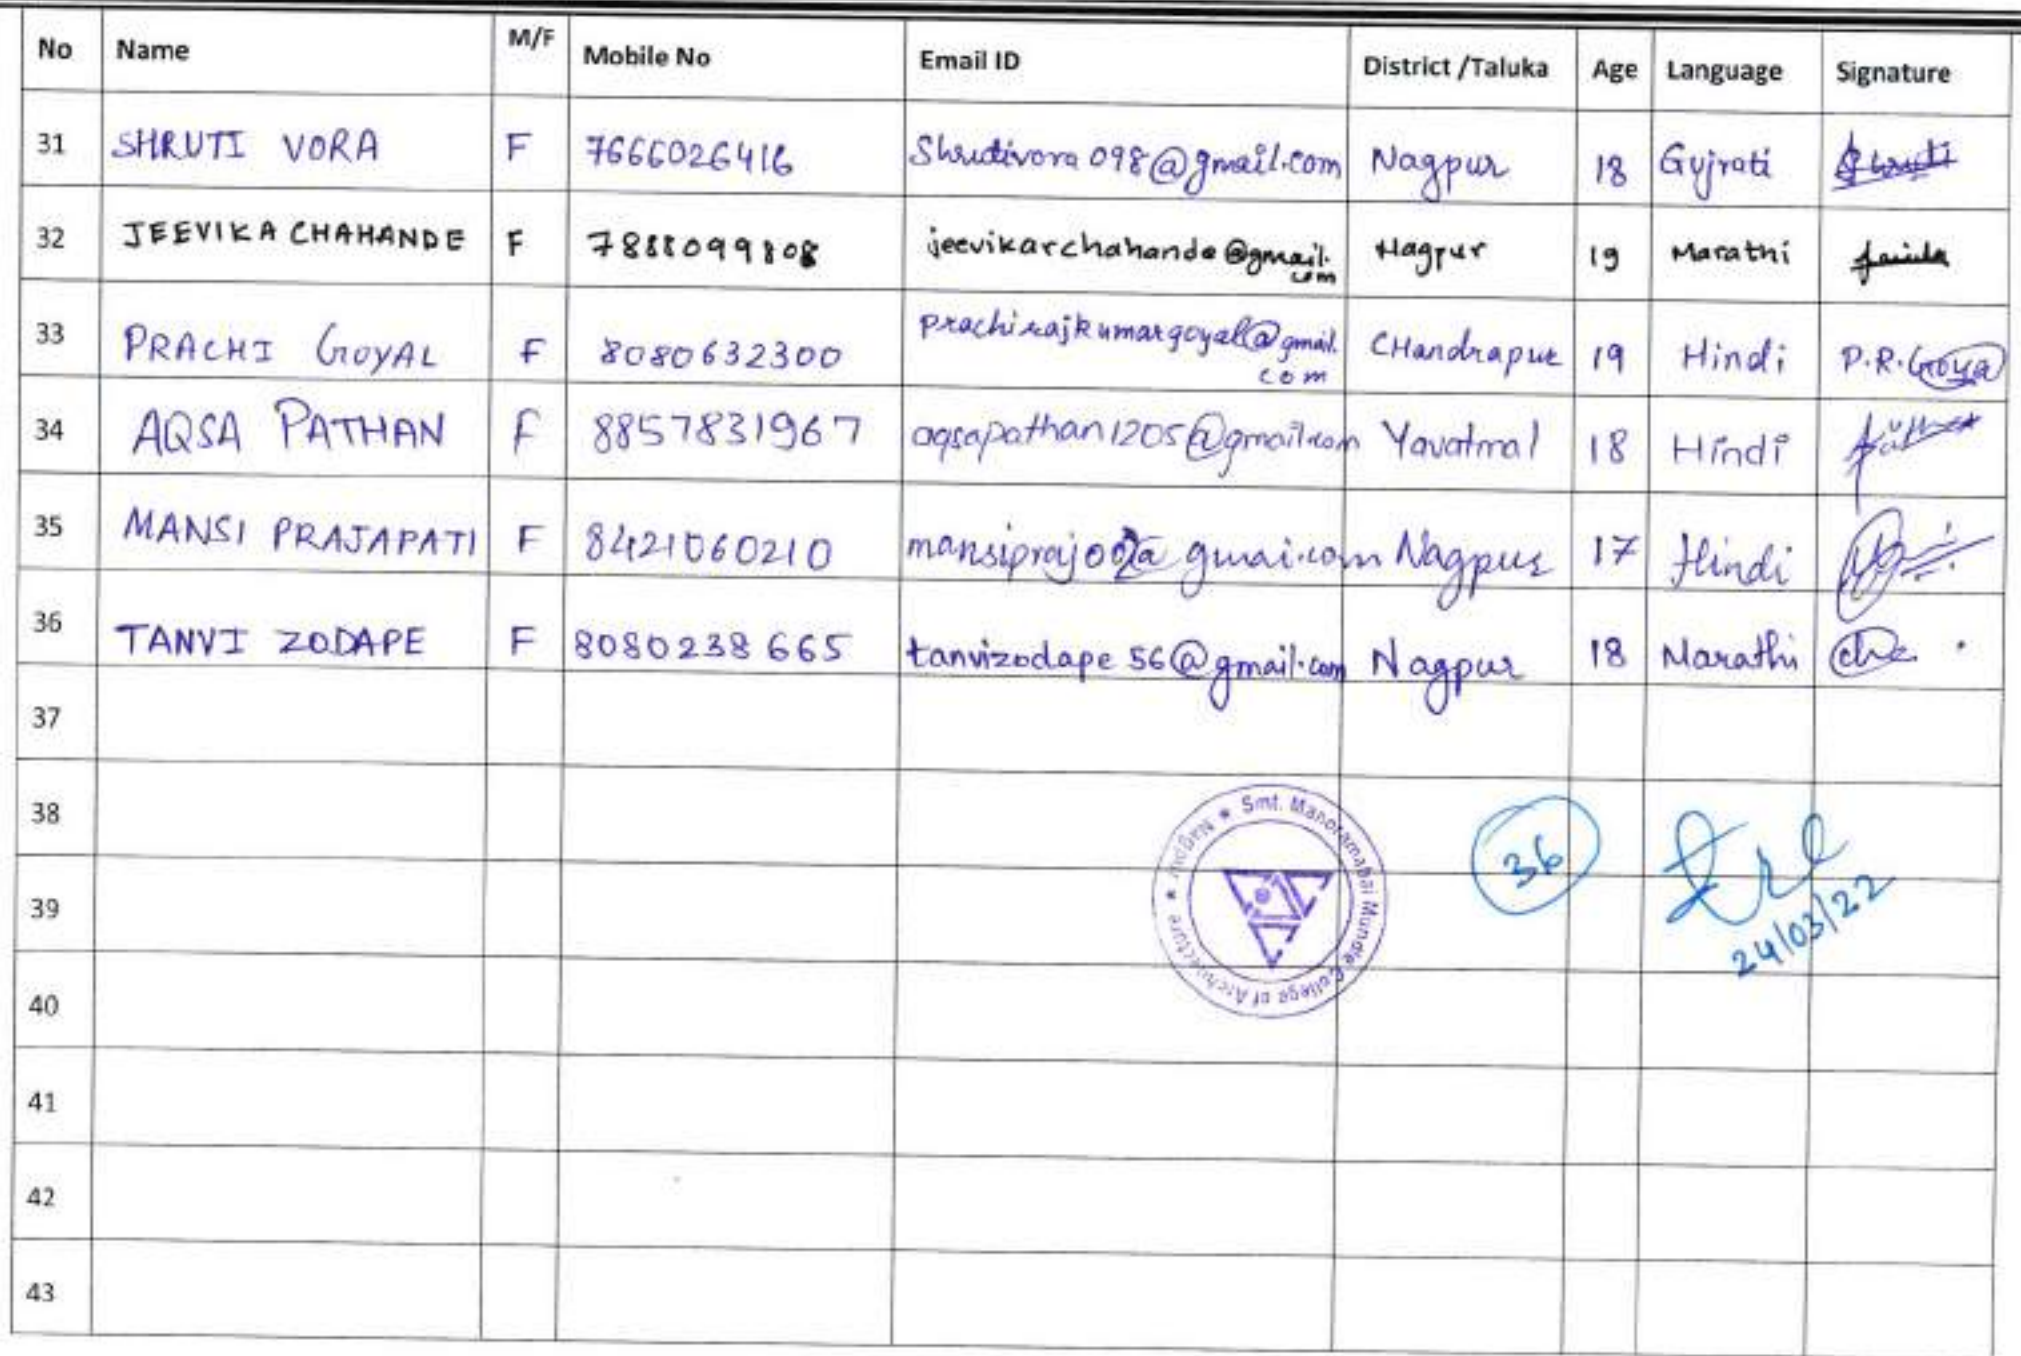 No Name M/F Mobile No Email ID District /Taluka Age Language Signature
31 SHRUTI VORA F 7666026416 Shrutivora098@gmail.com Nagpur 18 Gujrati Shruti
32 JEEVIKA CHAHANDE F 7888099808 jeevikarchahande@gmail.com Nagpur 19 Marathi
33 PRACHI GOYAL F 8080632300 prachirajkumargoyal@gmail.com CHandrapur 19 Hindi P.R.Goyal
34 AQSA PATHAN F 8857831967 aqsapathan1205@gmail.com Yavatmal 18 Hindi
35 MANSI PRAJAPATI F 8421060210 Nagpur 17 Hindi
36 TANVI ZODAPE F 8080238665 tanvizodape56@gmail.com Nagpur 18 Marathi
37
38
39
40
41
42
43
Smt. Manoramabai Mundle College of Architecture ★ Nagpur ★
36
24/03/22